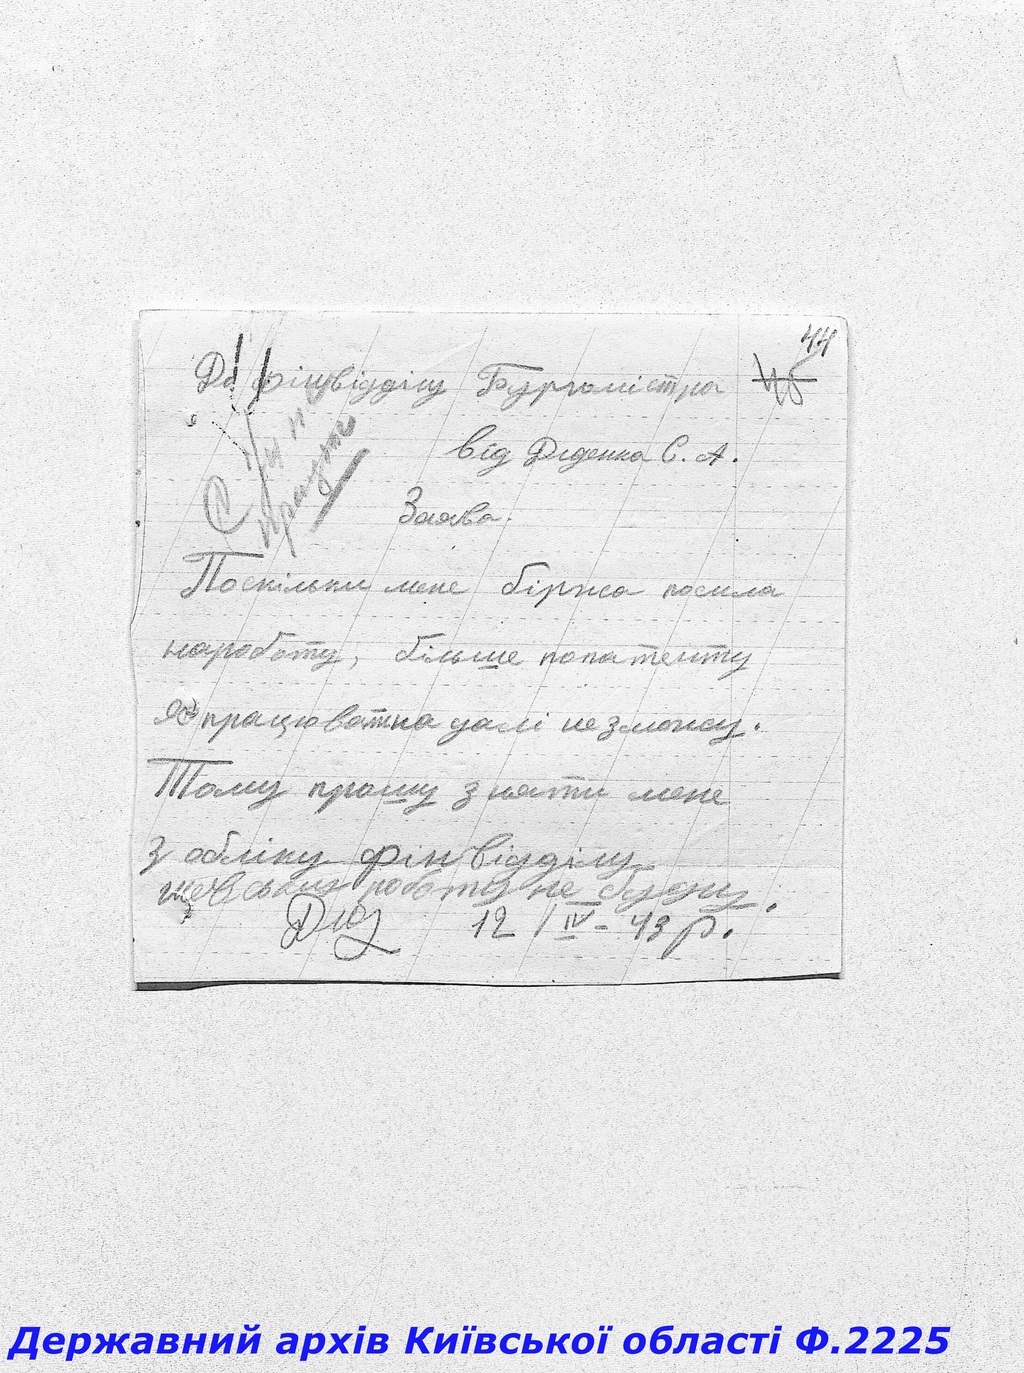 44
До фінвідділу Бургомістра 45
від Діденка С. А.
Заява.
Поскільки мене біржа посила
нароботу, більше попатенту
я працювати надалі незможу.
Тому прошу зняти мене
з обліку фінвідділу
шевських роботу не буду.
12/IV-43 р.
Державний архів Київської області Ф.2225